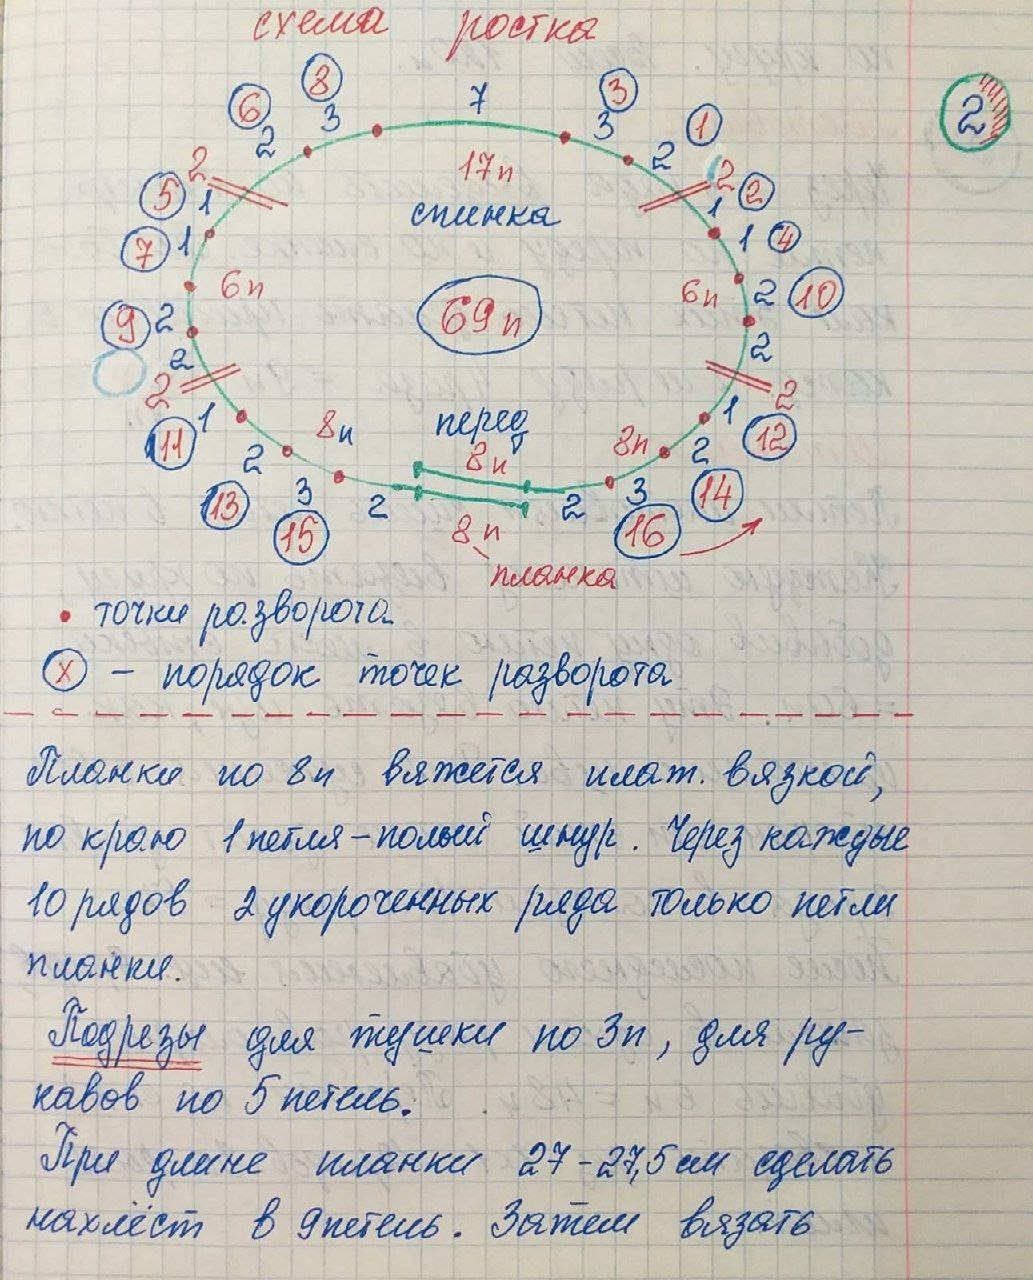 схема ростка
2
8
7
3
6
2
3
3
2
1
2
17п
2
2
5
1
спинка
1
7
1
1
4
6п
6п
2
10
69п
9
2
2
2
2
2
перед
1
1
12
11
8п
8п
8п
2
2
13
3
2
2
3
14
15
8п
16
планка
точки разворота
х – порядок точек разворота
Планки по 8п вяжется плат. вязкой,
по краю 1 петля – полый шнур. Через каждые
10 рядов 2 укороченных ряда только петли
планки.
Подрезы для тушки по 3п, для ру-
кавов по 5 петель.
При длине планки 27 – 27,5 см сделать
нахлёст в 9 петель. Затем вязать